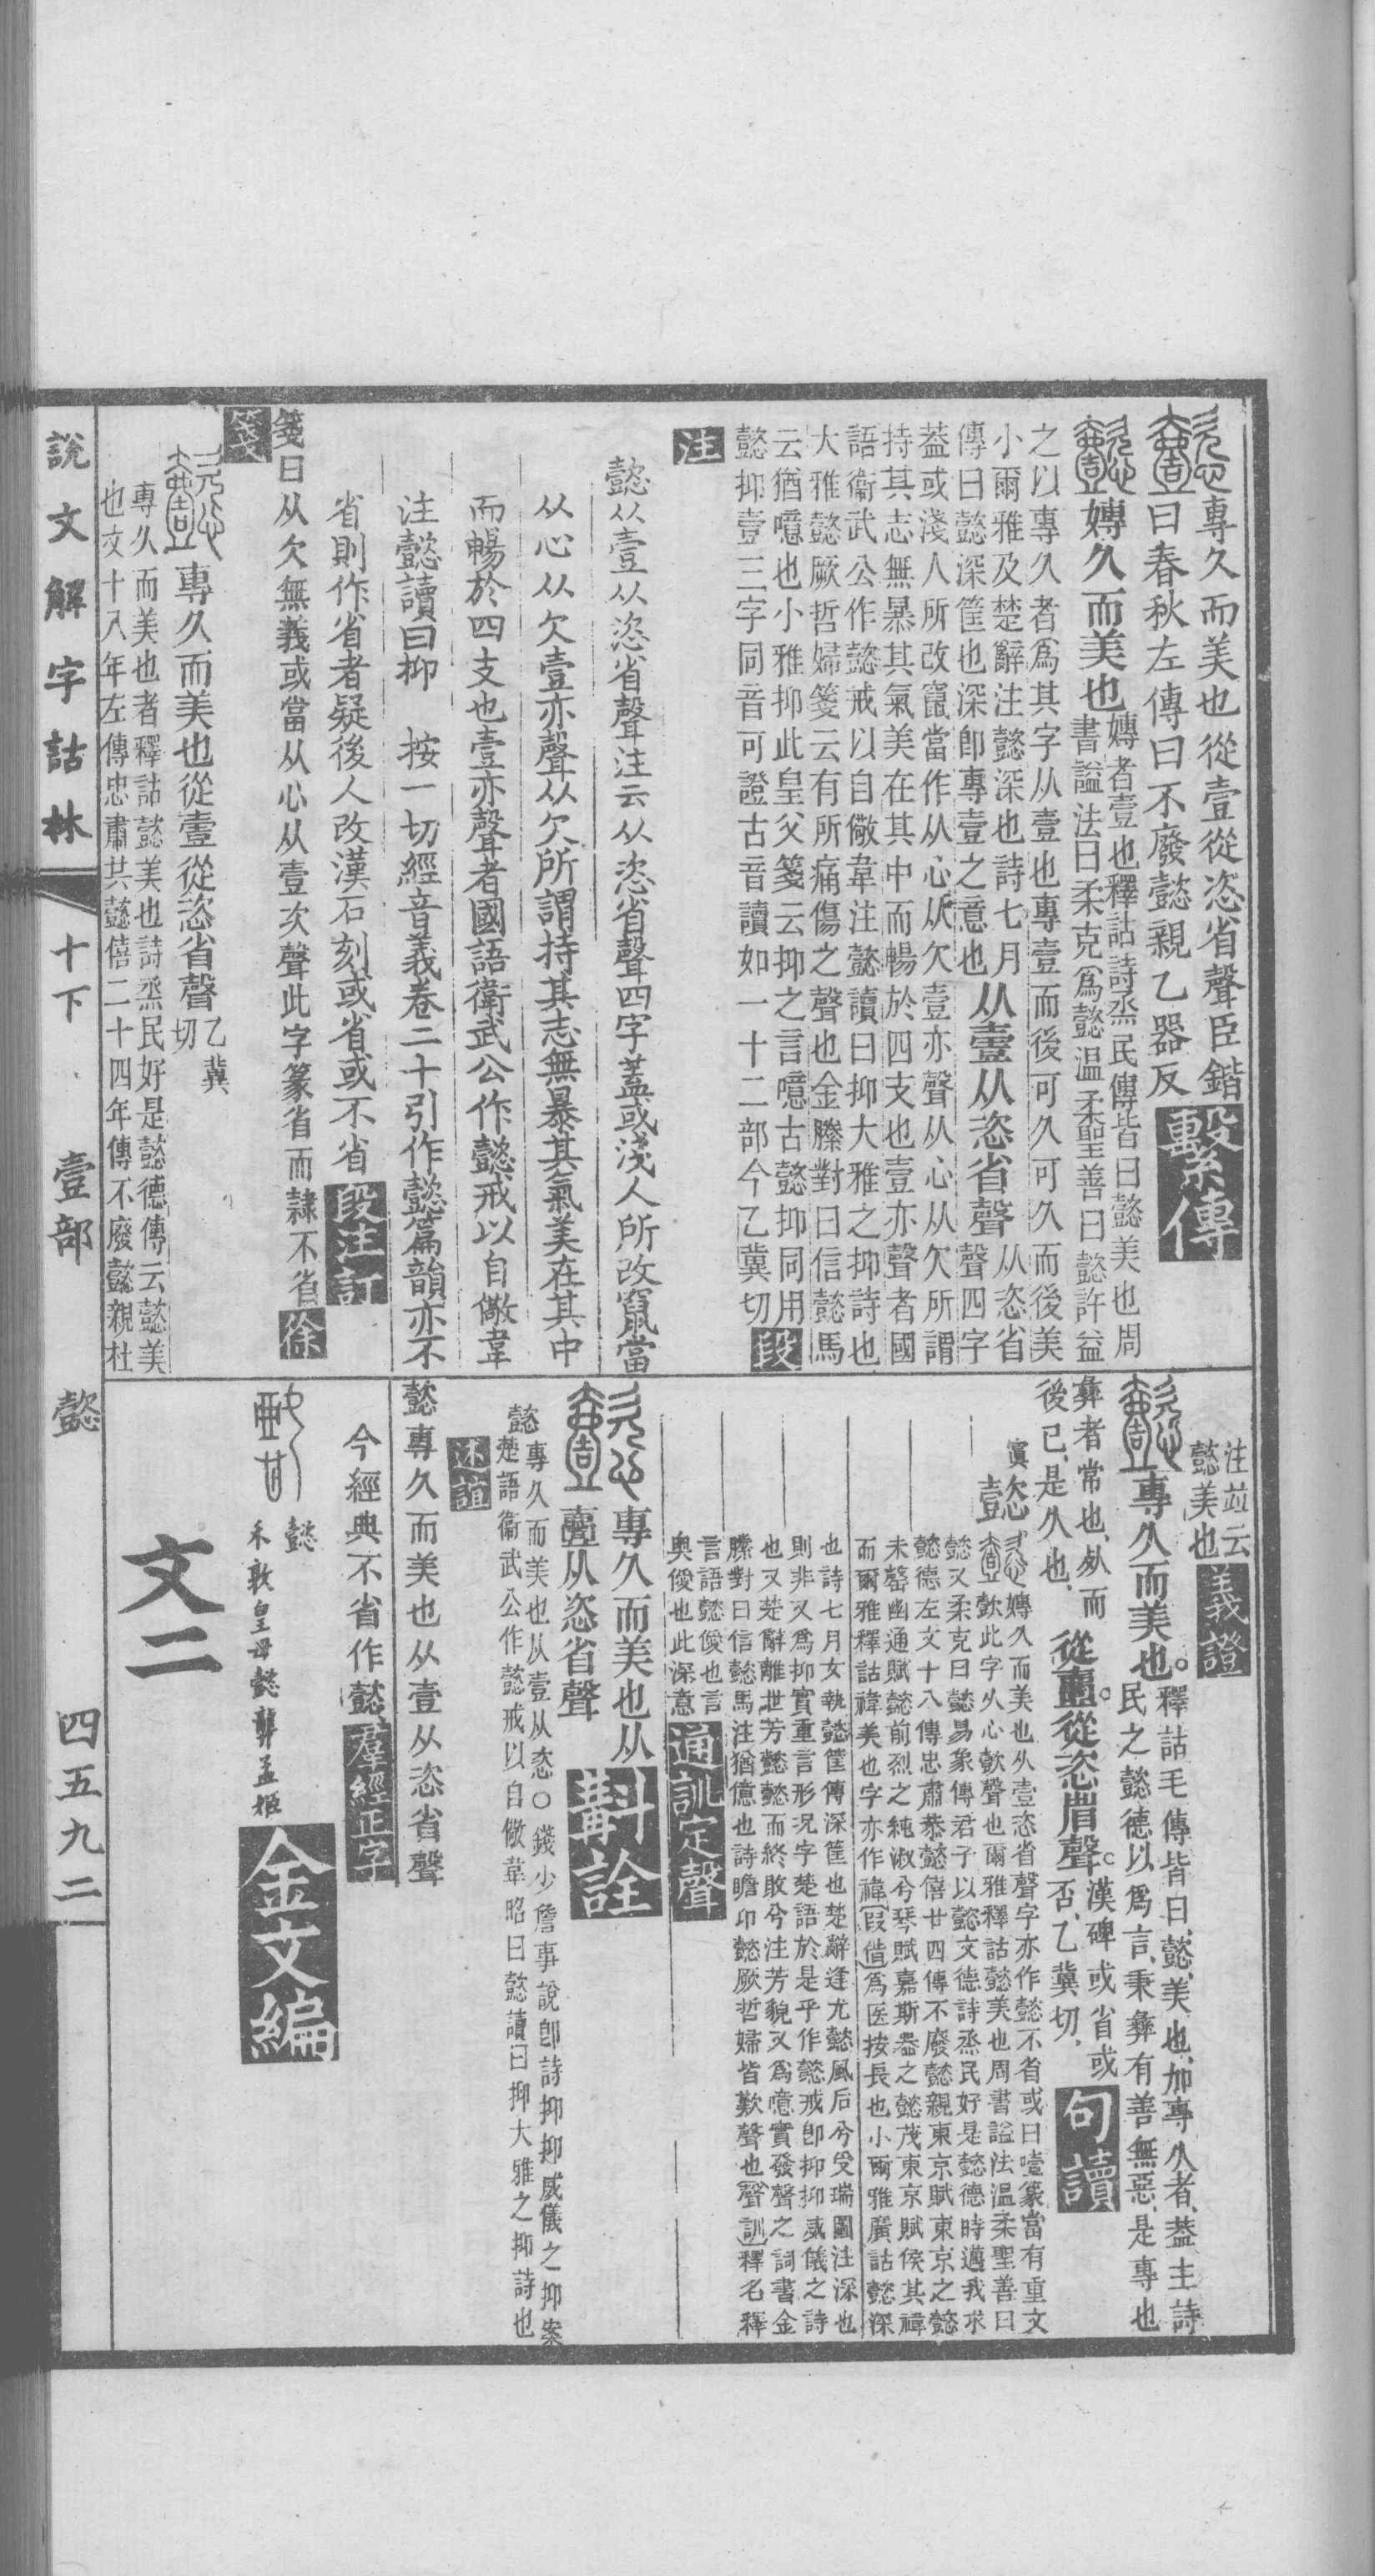 專久而美也從壹從恣省聲臣鍇
曰春秋左傳曰不廢懿親乙器反
繫傳
嫥久而美也
嫥者壹也釋詁詩烝民傳皆曰懿美也周
書謚法曰柔克爲懿溫柔聖善曰懿許益
之以專久者爲其字从壹也專壹而後可久可久而後美
小爾雅及楚辭注懿深也詩七月
傳曰懿深筐也深卽專壹之意也
从壹从恣省聲
从恣省
聲四字
蓋或淺人所改竄當作从心从欠壹亦聲从心从欠所謂
持其志無暴其氣美在其中而暢於四支也壹亦聲者國
語衞武公作懿戒以自儆韋注懿讀曰抑大雅之抑詩也
大雅懿厥哲婦箋云有所痛傷之聲也金縢對曰信懿馬
云猶噫也小雅抑此皇父箋云抑之言噫古懿抑同用
懿抑壹三字同音可證古音讀如一十二部今乙冀切
段
注
懿从壹从恣省聲注云从恣省聲四字蓋或淺人所改竄當
从心从欠壹亦聲从欠所謂持其志無暴其氣美在其中
而暢於四支也壹亦聲者國語衛武公作懿戒以自儆韋
注懿讀曰抑　按一切經音義卷二十引作懿篇韻亦不
省則作省者疑後人改漢石刻或省或不省
段注訂
箋曰从欠無義或當从心从壹次聲此字篆省而隸不省
徐
箋
專久而美也從壹從恣省聲
乙冀
切
專久而美也者釋詁懿美也詩烝民好是懿德傳云懿美
也文十八年左傳忠肅共懿僖二十四年傳不廢懿親杜
注竝云
懿美也
義證
專久而美也。
釋詁毛傳皆曰、懿、美也、加專久者、葢主詩
民之懿德以爲言、秉彝有善無惡、是專也
彝者常也、从而
後已、是久也、
從壹。從恣省聲。
漢碑或省或
否、乙冀切、
句讀
懿
嫥久而美也从壹恣省聲字亦作懿不省或曰噎篆當有重文
歖此字从心歖聲也爾雅釋詁懿美也周書謚法溫柔聖善曰
懿又柔克曰懿易象傳君子以懿文德詩烝民好是懿德時邁我求
懿德左文十八傳忠肅恭懿僖廿四傳不廢懿親東京賦東京之懿
未罄幽通賦懿前烈之純淑兮琴賦嘉斯器之懿茂東京賦侯其禕
而爾雅釋詁禕美也字亦作禕叚借爲医按長也小爾雅廣詁懿深
也詩七月女執懿筐傳深筐也楚辭逢尤懿風后兮受瑞圖注深也
則非又爲抑實重言形況字楚語於是乎作懿戒卽抑抑威儀之詩
也又楚辭離世芳懿懿而終敗兮注芳貌又爲噫實發聲之詞書金
縢對曰信懿馬注猶億也詩瞻卬懿厥哲婦皆歎聲也聲訓釋名釋
言語懿僾也言
奥僾也此深意
通訓定聲
專久而美也从
壹从恣省聲
斠詮
懿
專久而美也从壹从恣〇錢少詹事說卽詩抑抑威儀之抑案
楚語衞武公作懿戒以自儆韋昭曰懿讀曰抑大雅之抑詩也
述誼
懿專久而美也从壹从恣省聲
今經典不省作懿
羣經正字
懿
禾敦皇母懿龏孟姬
金文編
文二
說文解字詁林
十下
壹部
懿
四五九二